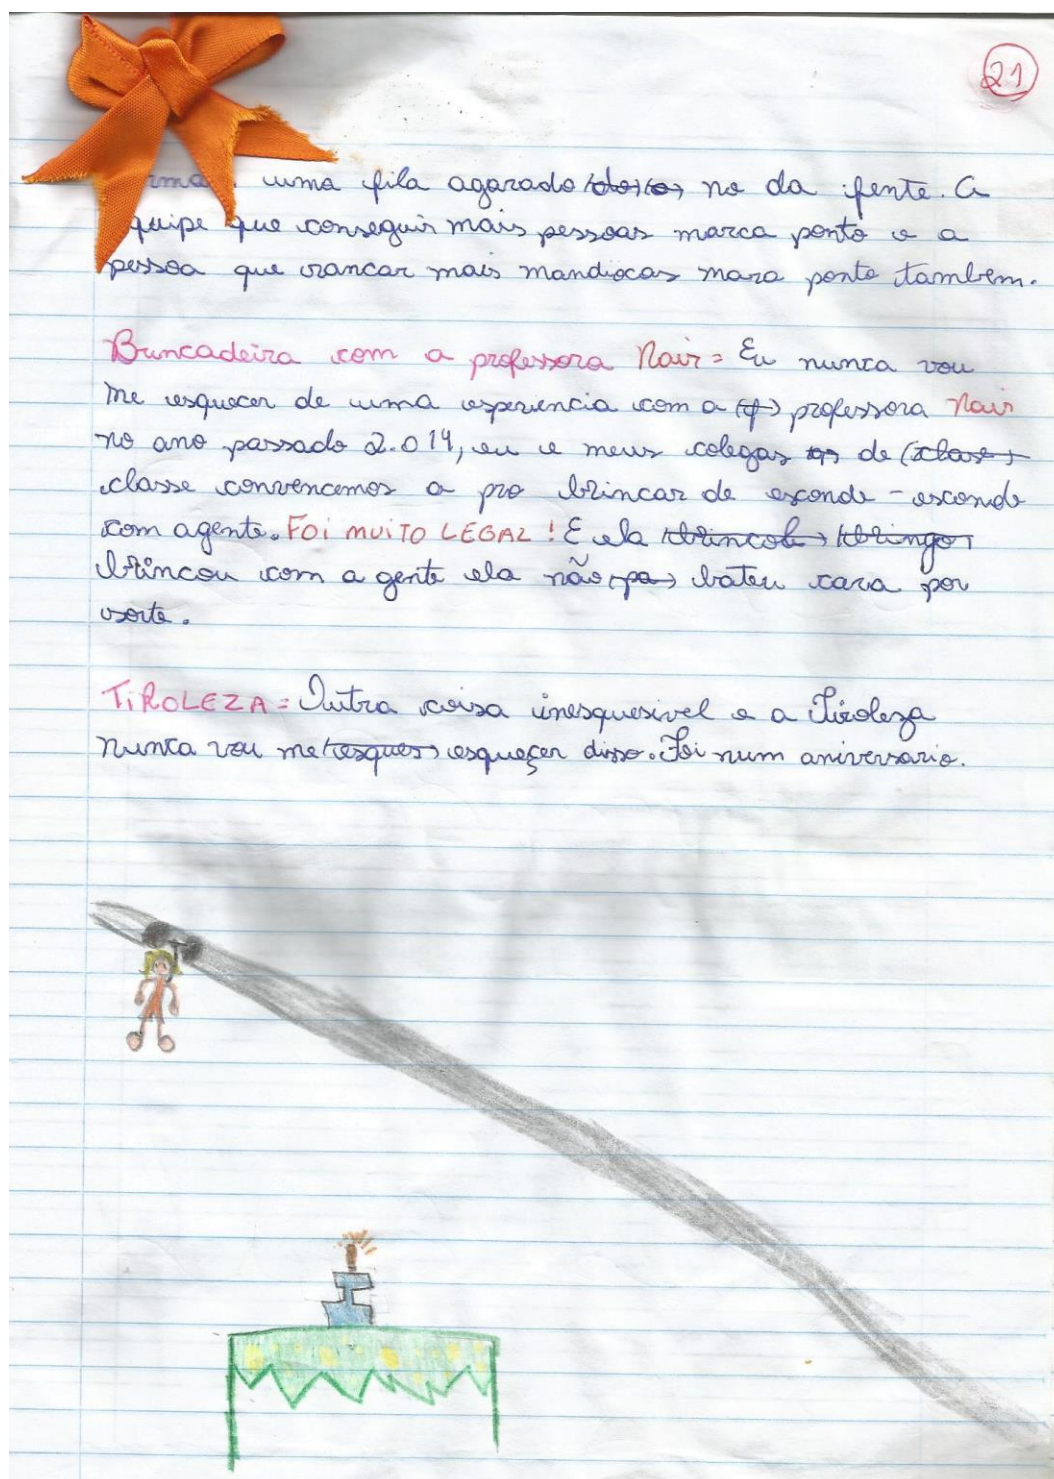 21
uma fila agarado no da fente. A
quipe que conseguir mais pessoas marca ponto e a
pessoa que rancar mais mandiocas mara ponto tambem.
Bruncadeira com a professora Nair = Eu nunca vou
me esquecer de uma esperiencia com a (f) professora Nair
no ano passado 2.014, eu e meus colegas de (clase)
classe convencemos a pro brincar de esconde-esconde
com agente. FOI MUITO LEGAL! E ela (brincol) (bringo)
brincou com a gente ela não (pa) bateu cara por
sorte.
TIROLEZA = Outra coisa inesquesivel e a Tiroleza
nunca vou me (esques) esqueçer disso. Foi num aniversario.